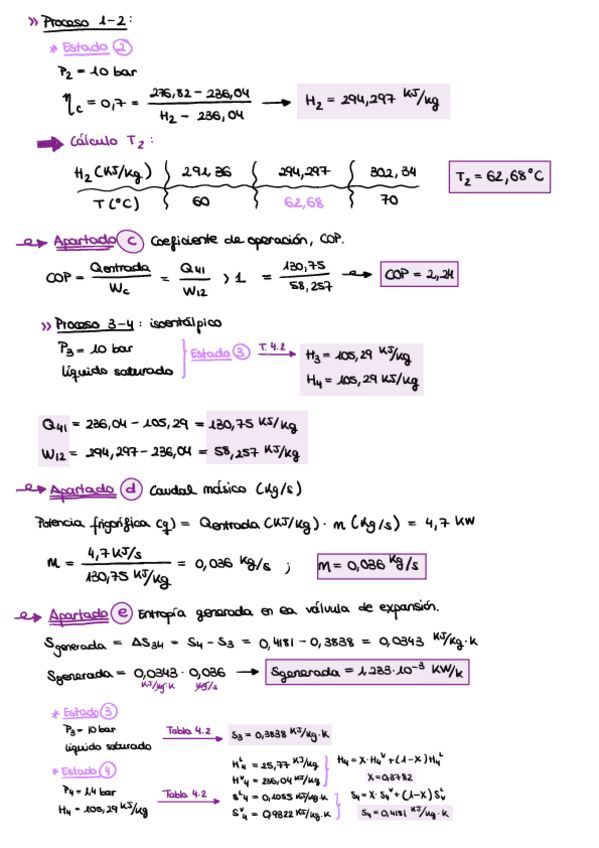 » Proceso 1-2:
* Estado 2
P2 = 10 bar
ηc = 0,7 = (276,82 - 236,04) / (H2 - 236,04) → H2 = 294,297 KJ/kg
→ Cálculo T2:
H2 (KJ/kg) 291,36 294,297 302,34
T (°C) 60 62,68 70
T2 = 62,68°C
Apartado c Coeficiente de operación, COP.
COP = Qentrada / Wc = Q41 / W12 > 1 = 130,75 / 58,257 → COP = 2,24
» Proceso 3-4: isoentálpico
P3 = 10 bar
líquido saturado
Estado 3 T. 4.2
H3 = 105,29 KJ/kg
H4 = 105,29 KJ/kg
Q41 = 236,04 - 105,29 = 130,75 KJ/kg
W12 = 294,297 - 236,04 = 58,257 KJ/kg
Apartado d Caudal másico (kg/s)
Potencia frigorífica (q) = Qentrada (KJ/kg) · m (kg/s) = 4,7 KW
m = 4,7 KJ/s / 130,75 KJ/kg = 0,036 kg/s ; m = 0,036 kg/s
Apartado e Entropía generada en la válvula de expansión.
Sgenerada = ΔS34 = S4 - S3 = 0,4181 - 0,3838 = 0,0343 KJ/kg·K
Sgenerada = 0,0343 · 0,036 → Sgenerada = 1,233·10⁻³ KW/K
KJ/kg·K kg/s
* Estado 3
P3 = 10 bar
líquido saturado
Tabla 4.2
S3 = 0,3838 KJ/kg·K
* Estado 4
P4 = 1,4 bar
H4 = 105,29 KJ/kg
Tabla 4.2
H4ᴸ = 25,77 KJ/kg
H4ⱽ = 236,04 KJ/kg
H4 = X·H4ⱽ + (1-X) H4ᴸ
X = 0,3782
S4ᴸ = 0,1055 KJ/kg·K
S4ⱽ = 0,9322 KJ/kg·K
S4 = X·S4ⱽ + (1-X) S4ᴸ
S4 = 0,4181 KJ/kg·K